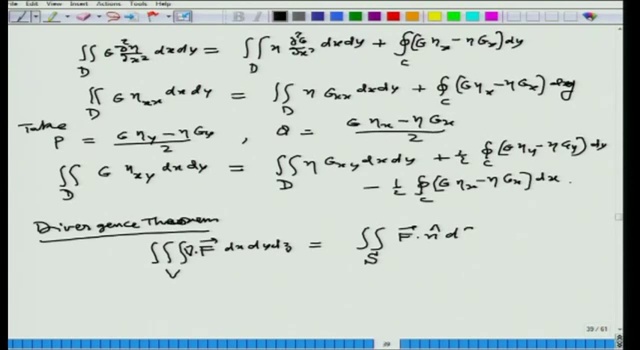 View Insert Actions Tools Help
∬_D G ∂²η/∂x² dxdy = ∬_D η ∂²G/∂x² dxdy + ∮_C (G η_x − η G_x) dy
∬_D G η_xx dxdy = ∬_D η G_xx dxdy + ∮_C (G η_x − η G_x) dy
Take P = (G η_y − η G_y)/2 , Q = (G η_x − η G_x)/2
∬_D G η_xy dxdy = ∬_D η G_xy dxdy + ½ ∮_C (G η_y − η G_y) dy
− ½ ∮_C (G η_x − η G_x) dx.
Divergence Theorem
∭_V ∇.F⃗ dxdydz = ∬_S F⃗.n̂ d
39